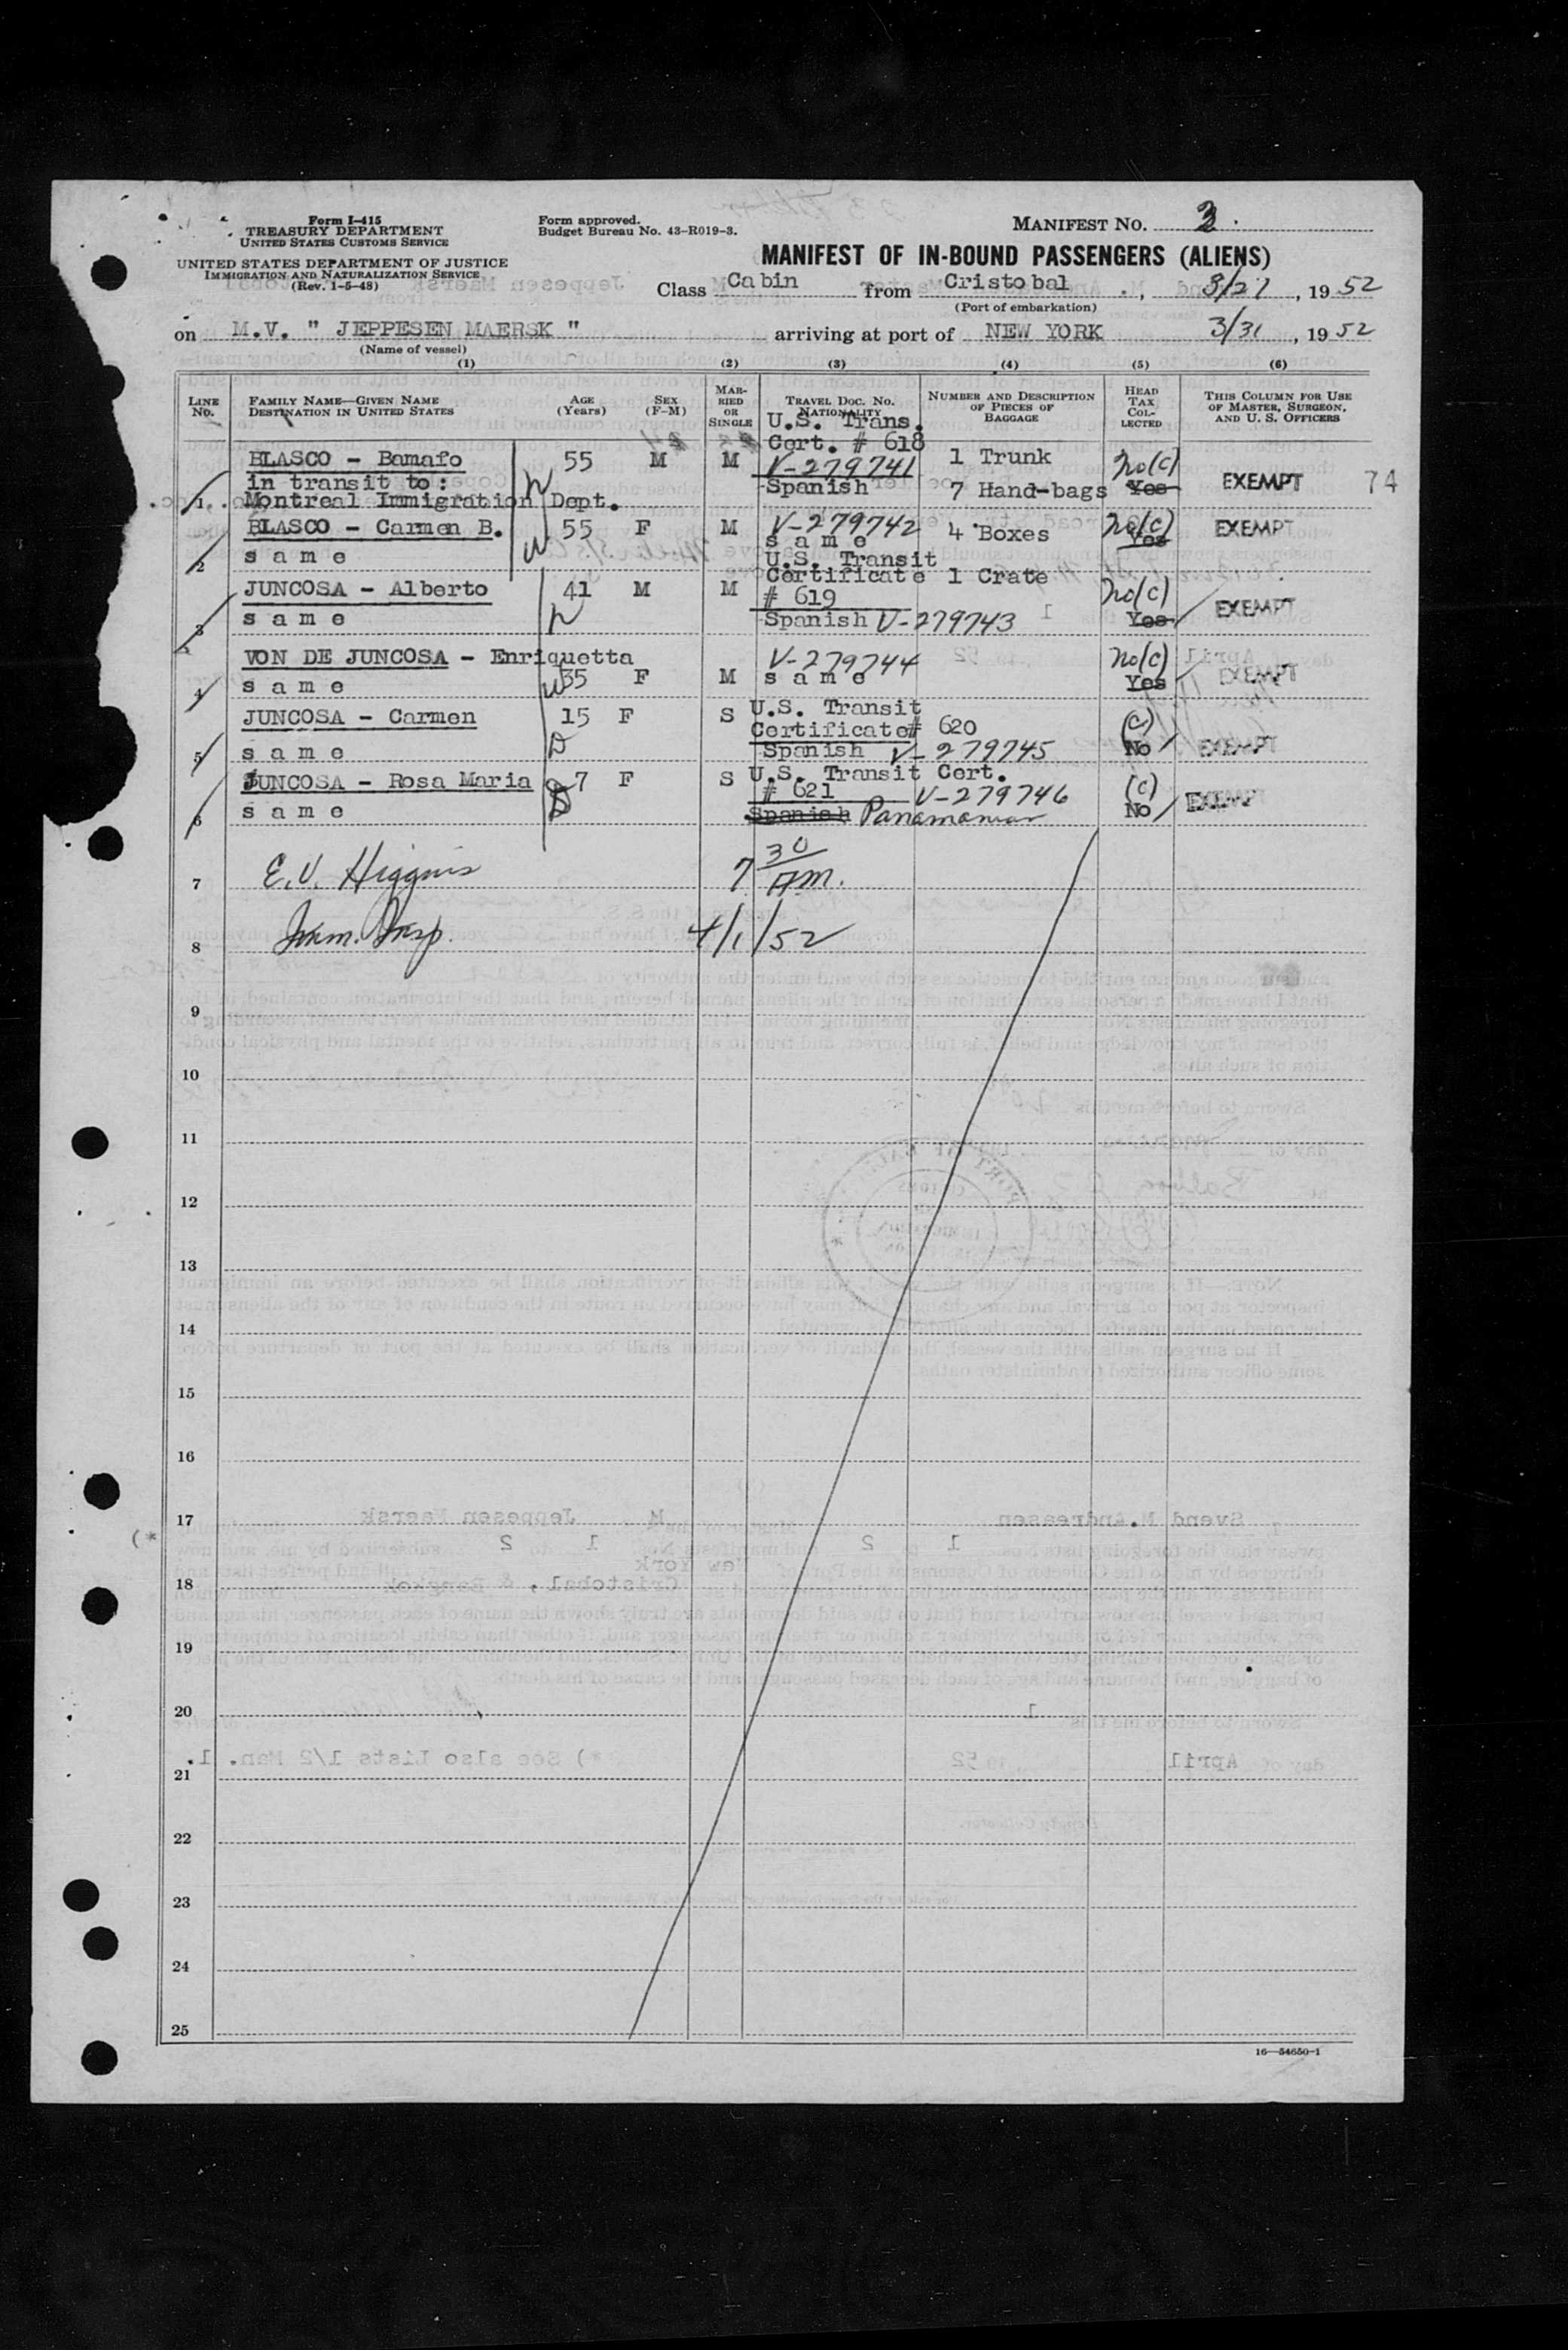 Form I-415
TREASURY DEPARTMENT
UNITED STATES CUSTOMS SERVICE
UNITED STATES DEPARTMENT OF JUSTICE
IMMIGRATION AND NATURALIZATION SERVICE
(Rev. 1-5-48)
Form approved.
Budget Bureau No. 43-R019-3.
MANIFEST NO. 3.
MANIFEST OF IN-BOUND PASSENGERS (ALIENS)
Class Cabin from Cristobal, 3/27, 1952
(Port of embarkation)
on M.V. " JEPPESEN MAERSK " arriving at port of NEW YORK 3/31, 1952
(Name of vessel)
(1) (2) (3) (4) (5) (6)
LINE NO. FAMILY NAME—GIVEN NAME DESTINATION IN UNITED STATES AGE (Years) SEX (F-M) MARRIED OR SINGLE TRAVEL DOC. NO. NATIONALITY NUMBER AND DESCRIPTION OF PIECES OF BAGGAGE HEAD TAX COLLECTED THIS COLUMN FOR USE OF MASTER, SURGEON, AND U. S. OFFICERS
U.S. Trans.
Cert. # 618
BLASCO - Bamafo 55 M M V-279741 1 Trunk No(c) EXEMPT 74
in transit to: Spanish 7 Hand-bags Yes
1 Montreal Immigration Dept.
BLASCO - Carmen B. 55 F M V-279742 4 Boxes No(c) EXEMPT
2 same same Yes
U.S. Transit
JUNCOSA - Alberto 41 M M Certificate 1 Crate No(c) EXEMPT
# 619
3 same Spanish V-279743 Yes
VON DE JUNCOSA - Enriquetta V-279744 No(c) EXEMPT
4 same 35 F M same Yes
JUNCOSA - Carmen 15 F S U.S. Transit (c) EXEMPT
Certificate# 620
5 same Spanish V-279745 No
JUNCOSA - Rosa Maria 7 F S U.S. Transit Cert. (c) EXEMPT
# 621 V-279746
6 same Spanish Panamanian No
7 E.V. Higgins 7 30 AM.
8 Imm. Insp. 4/1/52
9
10
11
12
13
14
15
16
17
18
19
20
21
22
23
24
25
16—54650-1